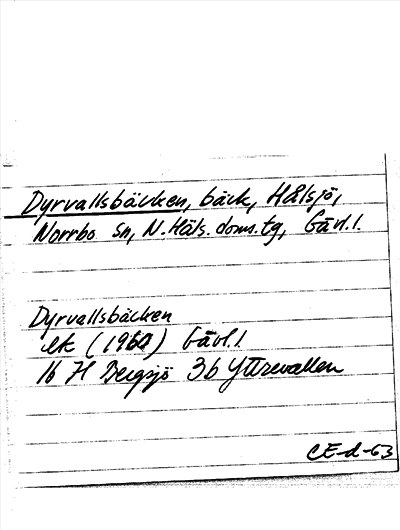 Dyrvallsbäcken, bäck, Hålsjö,
Norrbo sn, N. Häls. doms.tg, Gävl.l.
Dyrvallsbäcken
ek (1962) Gävl.l
16 H Bergsjö 3b Yttrevallen
CE-d-63